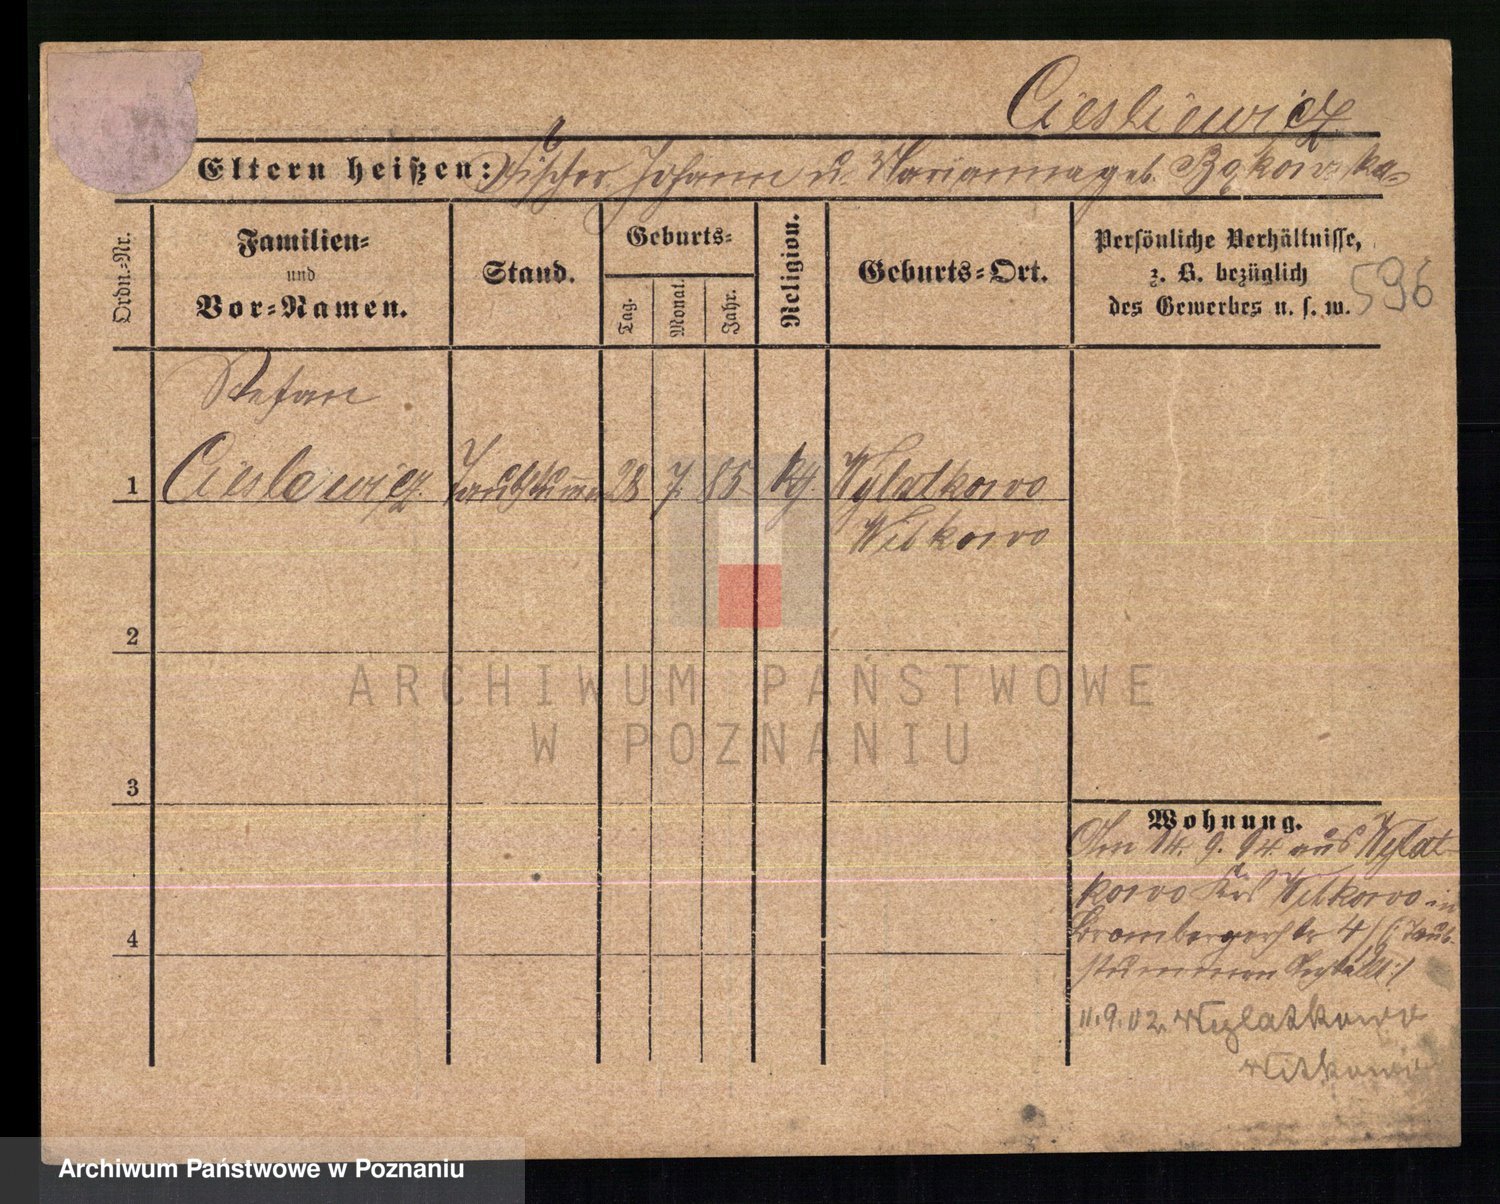 Ciesliewicz
Eltern heißen: Fischer Johann u. Marianna geb. Bąkowska
Ordn.-Nr.
Familien-
und
Vor-Namen.
Stand.
Geburts-
Tag.
Monat.
Jahr.
Religion.
Geburts-Ort.
Persönliche Verhältnisse,
z. B. bezüglich
des Gewerbes u. s. w.
596
Stefan
1 Cieslewicz Taubstumm 28 7. 85 Wylatkowo
Witkowo
2
3
4
ARCHIWUM PAŃSTWOWE
W POZNANIU
Wohnung.
14. 9. 94 aus Wylat-
kowo Krs Witkowo in
Brombergerstr 4 Taub-
stummen
11.9.02 Wylatkowo
Witkowo
Archiwum Państwowe w Poznaniu